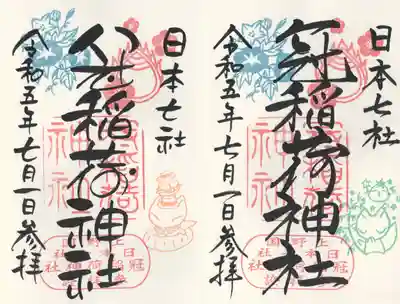 日本七社
冠稲荷神社
令和五年七月一日参拝
日本七社
冠稲荷神社
令和五年七月一日参拝